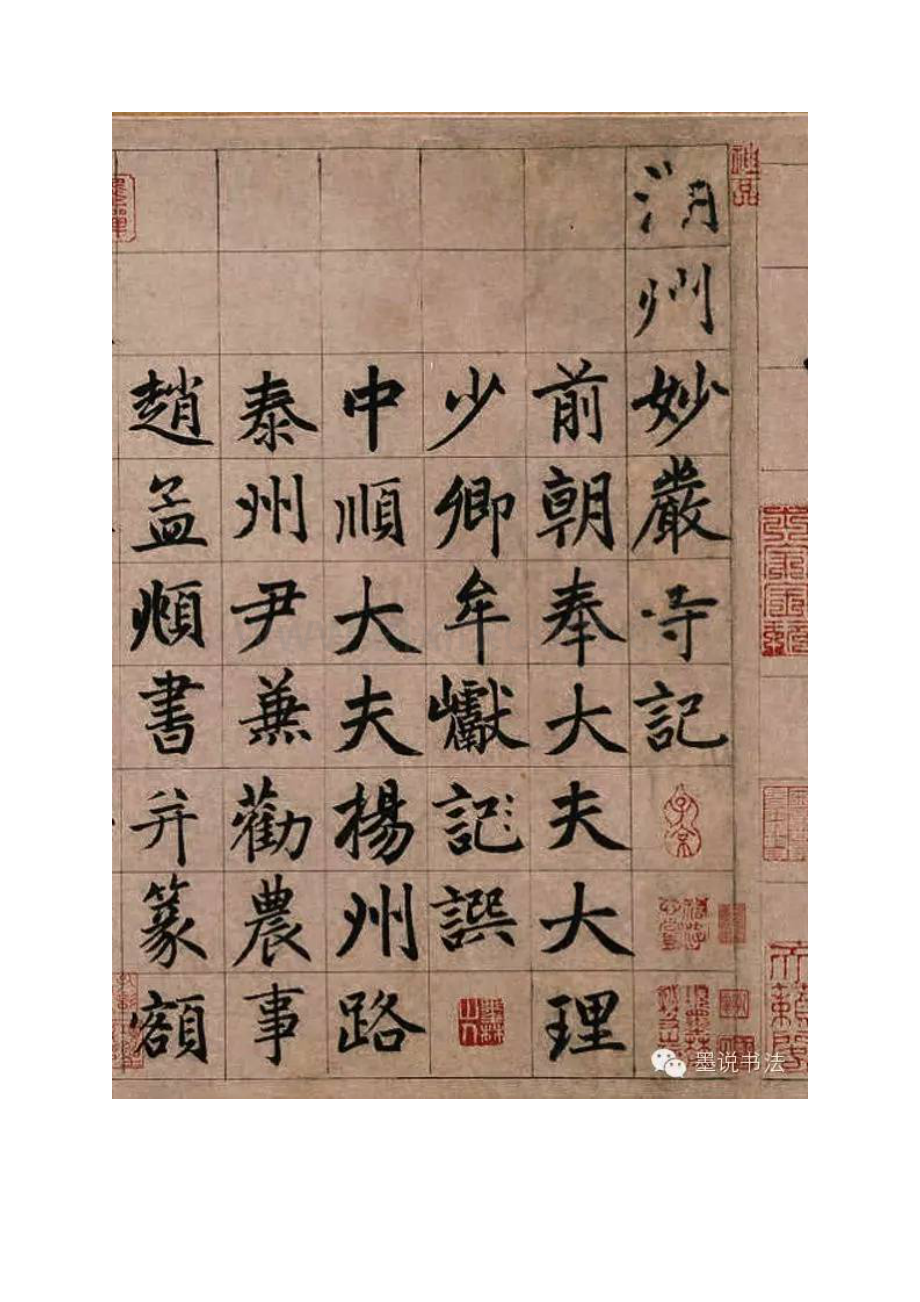 湖州妙嚴寺記
前朝奉大夫大理
少卿牟巘記撰
中順大夫揚州路
泰州尹兼勸農事
趙孟頫書并篆額
神品
子京
墨说书法